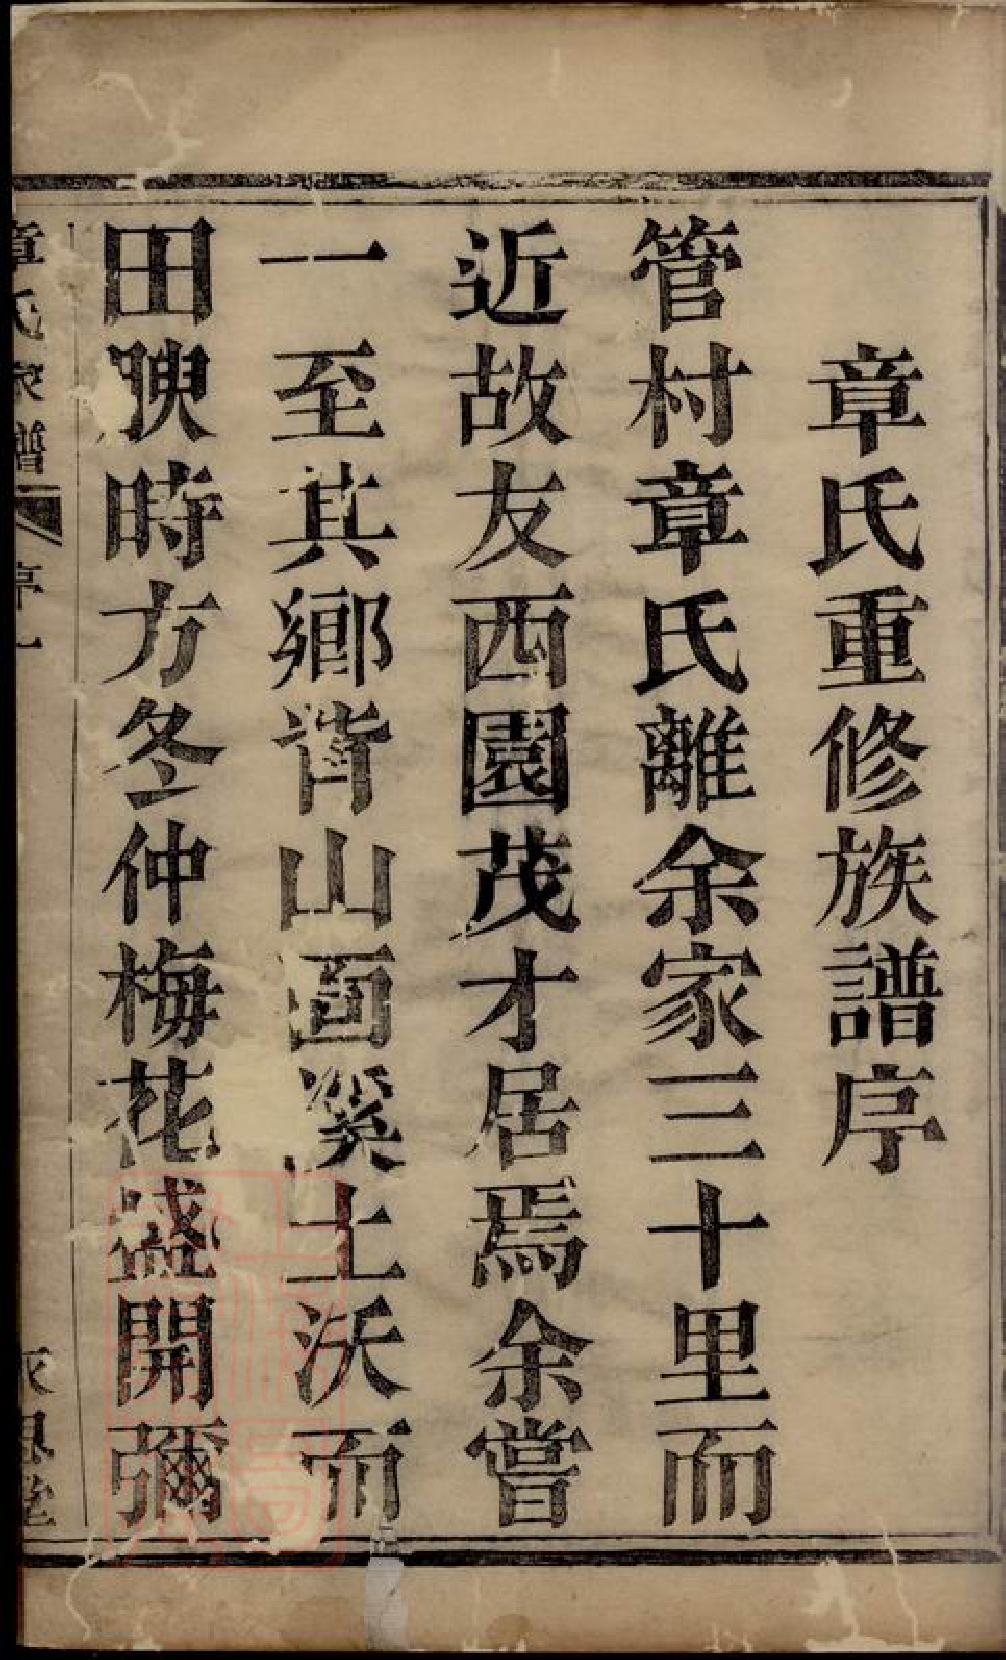 章氏重修族譜序
管村章氏離余家三十里而
近故友西園茂才居焉余嘗
一至其鄉背山面溪土沃而
田腴時方冬仲梅花盛開彌
章氏家譜 序一